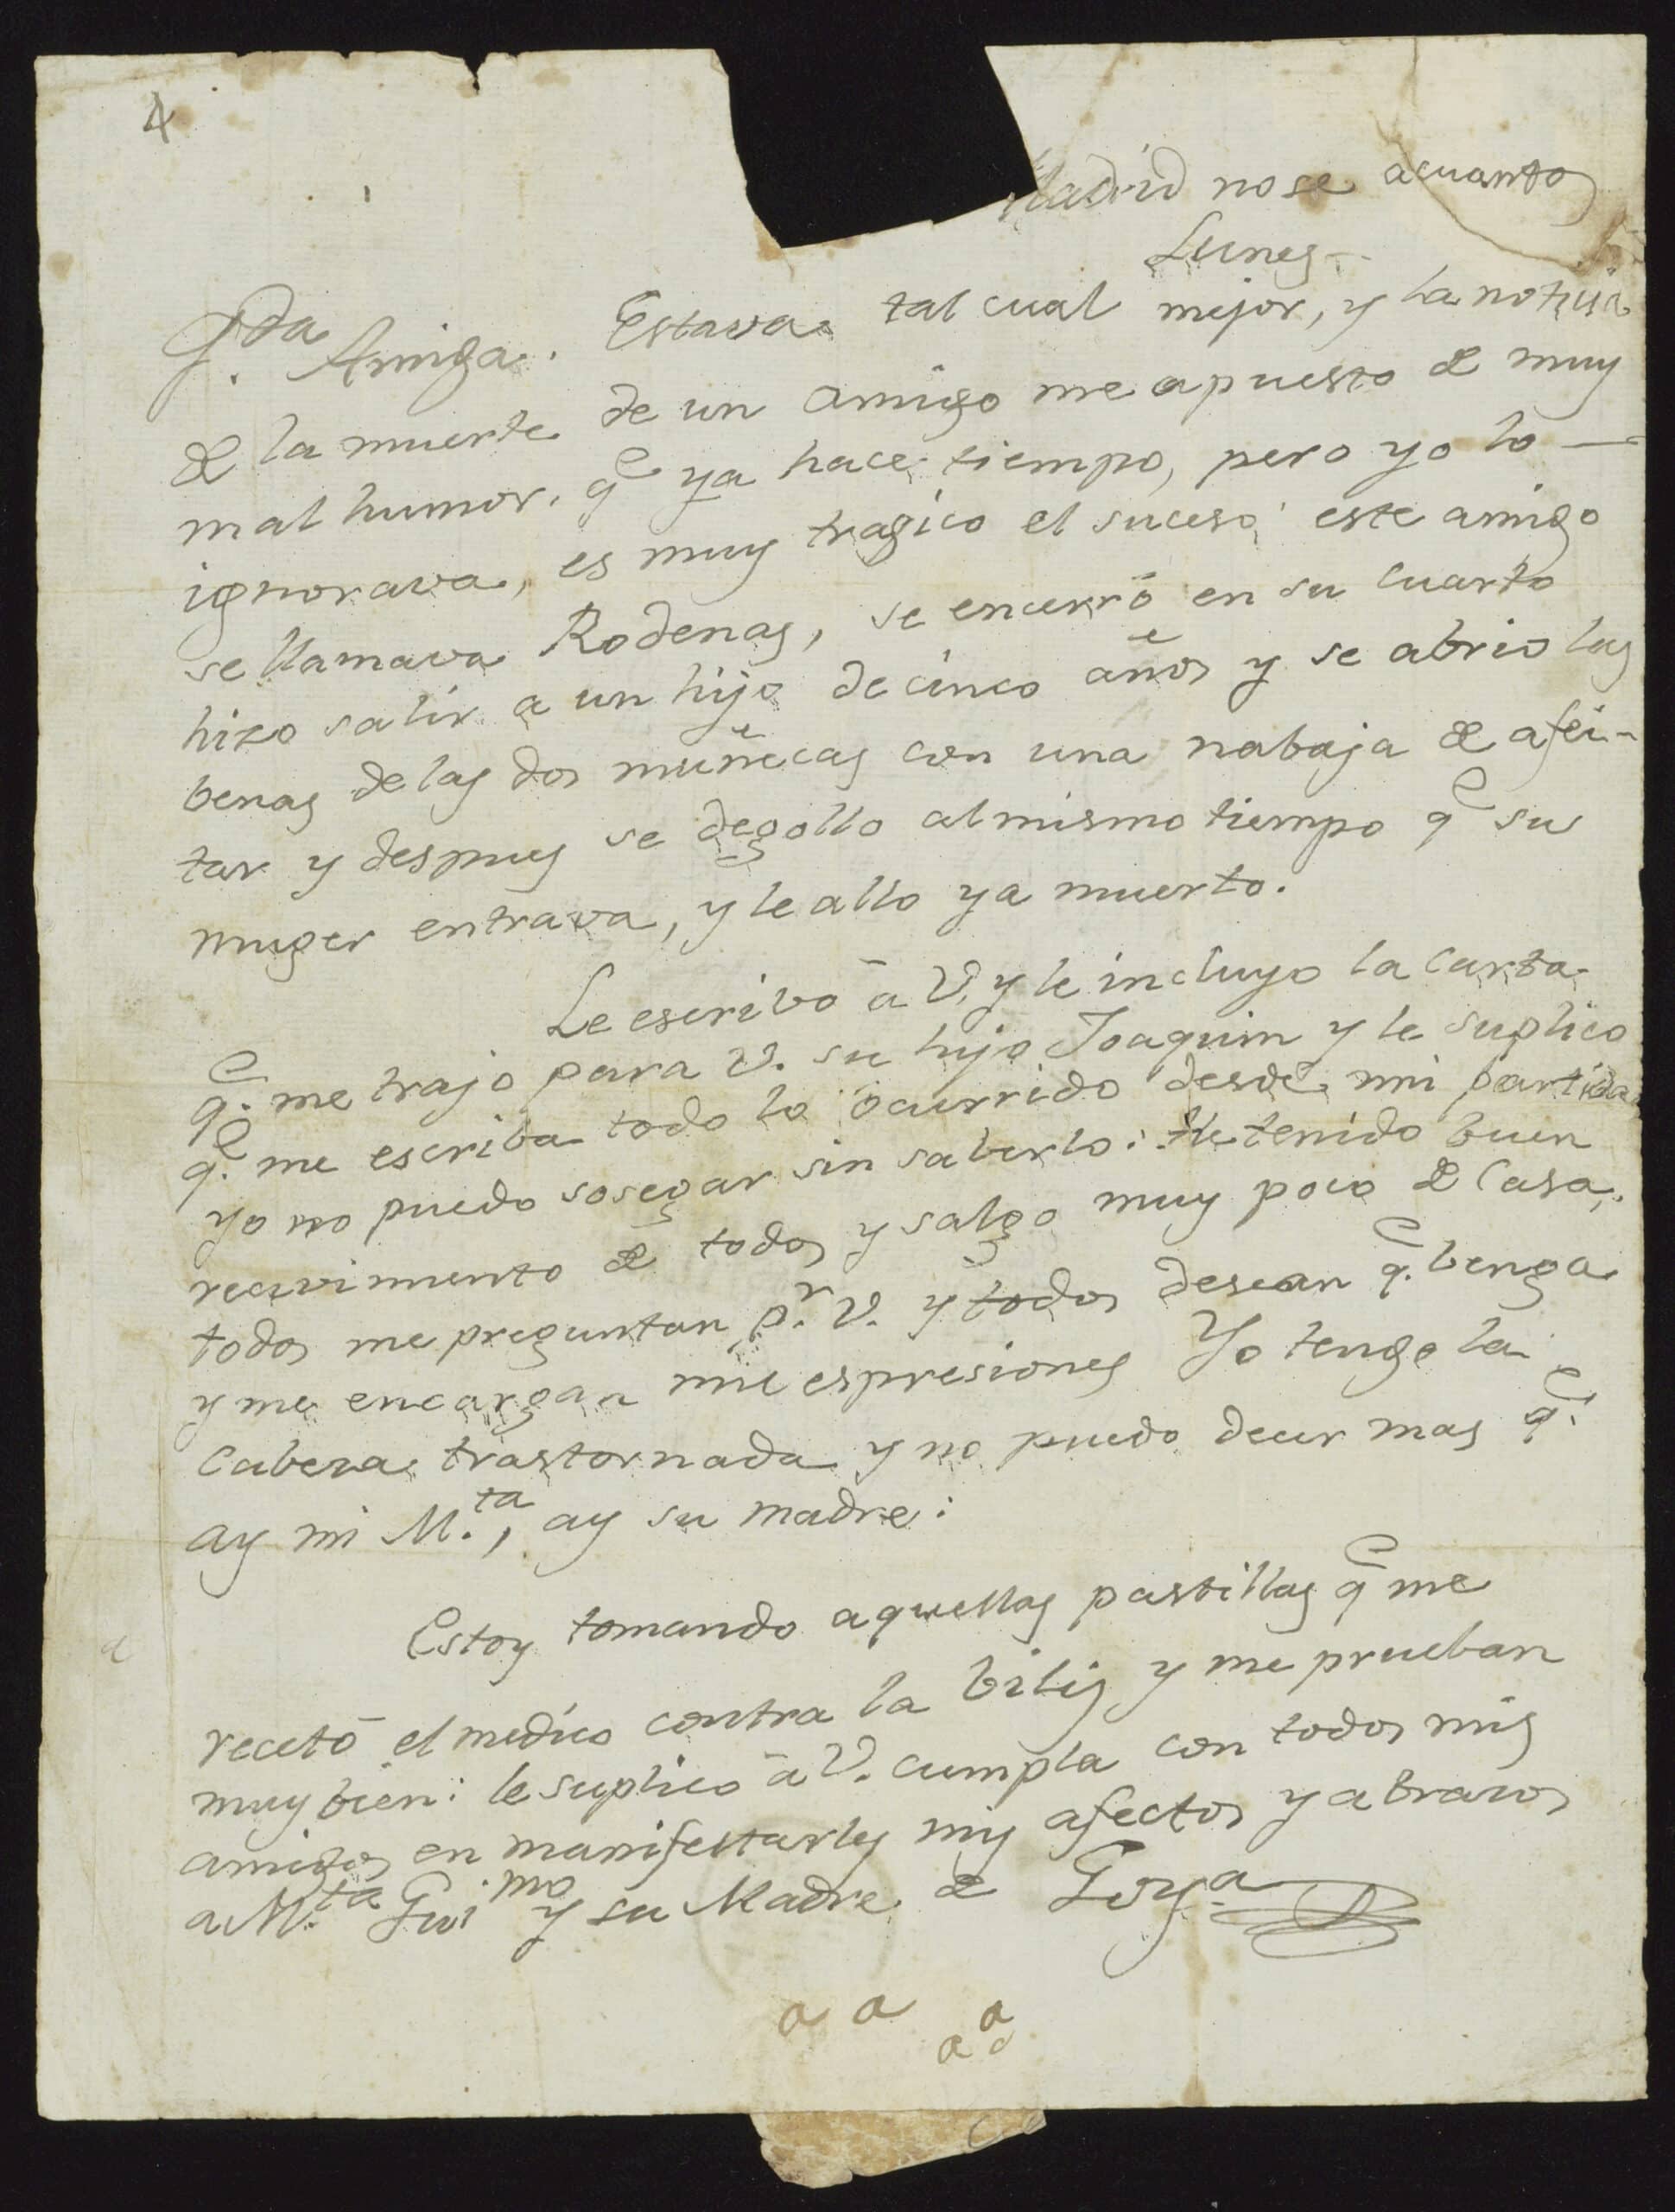 4
Madrid no se acuantos
Lunes
Qda. Amiga. Estava tal cual mejor, y la noticia
de la muerte de un amigo me a puesto de muy
mal humor, qe ya hace tiempo, pero yo lo —
ignorava, es muy tragico el suceso: este amigo
se llamava Rodenas, se encerró en su cuarto
hizo salir a un hijo de cinco años y se abrio las
benas de las dos muñecas con una nabaja de afei-
tar y despues se degollo al mismo tiempo qe su
muger entrava, y le allo ya muerto.
Le escribo á V. y le incluyo la carta
qe. me trajo para V. su hijo Joaquin y le suplico
qe. me escriba todo lo ocurrido desde mi partida
yo no puedo sosegar sin saberlo: He tenido buen
recivimiento de todos y salgo muy poco de Casa,
todos me preguntan pr. V. y todos desean qe. benga
y me encargan mil espresiones Yo tengo la
cabeza trastornada y no puedo decir mas qe.
ay mi M.ta, ay su madre:
Estoy tomando aquellas pastillas qe me
recetó el medico contra la bilis y me prueban
muy bien: le suplico á V. cumpla con todos mis
amigos en manifestarles mis afectos y abrazos
a M.ta Gui.mo y su Madre de Goya
a a a
a a